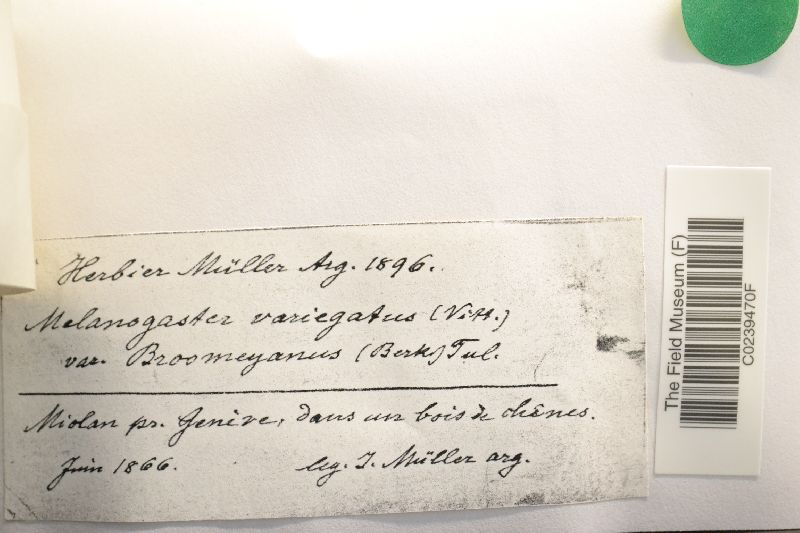 Herbier Müller Arg. 1896.
Melanogaster variegatus (Vitt.)
var. Broomeyanus (Berk) Tul.
Miolan pr. Genève, dans un bois de chênes.
Juin 1866. leg. J. Müller arg.
The Field Museum (F)
C0239470F